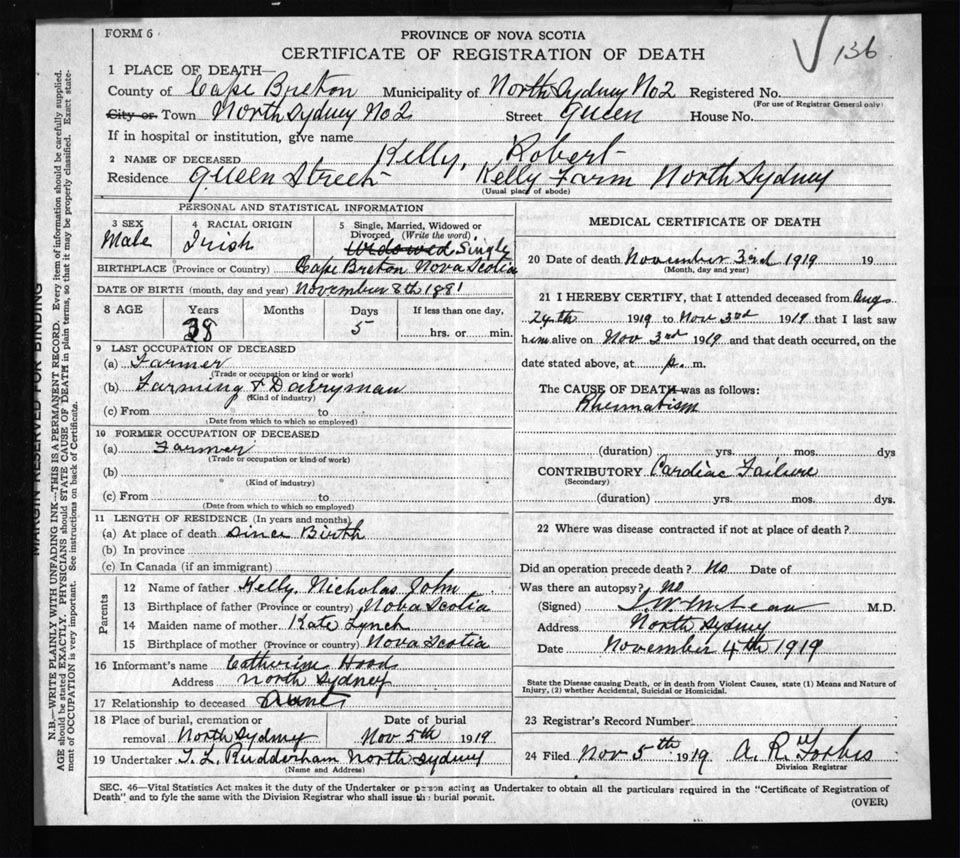 FORM 6
PROVINCE OF NOVA SCOTIA
CERTIFICATE OF REGISTRATION OF DEATH
136
1 PLACE OF DEATH—
County of Cape Breton Municipality of North Sydney No 2 Registered No.
(For use of Registrar General only)
City or Town North Sydney No 2 Street Queen House No.
If in hospital or institution, give name
2 NAME OF DECEASED Kelly, Robert
Residence Queen Street Kelly Farm North Sydney
(Usual place of abode)
PERSONAL AND STATISTICAL INFORMATION
3 SEX Male
4 RACIAL ORIGIN Irish
5 Single, Married, Widowed or Divorced (Write the word) Widowed Single
BIRTHPLACE (Province or Country) Cape Breton Nova Scotia
DATE OF BIRTH (month, day and year) November 8th 1881
8 AGE Years Months Days If less than one day,
38 5 hrs. or min.
9 LAST OCCUPATION OF DECEASED
(a) Farmer
(Trade or occupation or kind of work)
(b) Farming & Dairyman
(Kind of industry)
(c) From to
(Date from which to which so employed)
10 FORMER OCCUPATION OF DECEASED
(a) Farmer
(Trade or occupation or kind of work)
(b)
(Kind of industry)
(c) From to
(Date from which to which so employed)
11 LENGTH OF RESIDENCE (In years and months)
(a) At place of death Since Birth
(b) In province
(c) In Canada (if an immigrant)
Parents
12 Name of father Kelly, Nicholas John
13 Birthplace of father (Province or country) Nova Scotia
14 Maiden name of mother Kate Lynch
15 Birthplace of mother (Province or country) Nova Scotia
16 Informant's name Catherine Hood
Address North Sydney
17 Relationship to deceased Aunt
18 Place of burial, cremation or removal North Sydney Date of burial Nov 5th 1919
19 Undertaker T. L. Rudderham North Sydney
(Name and Address)
MEDICAL CERTIFICATE OF DEATH
20 Date of death November 3rd 1919 19
(Month, day and year)
21 I HEREBY CERTIFY, that I attended deceased from Aug
24th 1919 to Nov 3rd 1919 that I last saw
him alive on Nov 3rd 1919 and that death occurred, on the
date stated above, at p. m.
The CAUSE OF DEATH was as follows:
Rheumatism
(duration) yrs. mos. dys
CONTRIBUTORY Cardiac Failure
(Secondary)
(duration) yrs. mos. dys.
22 Where was disease contracted if not at place of death?
Did an operation precede death? No Date of
Was there an autopsy? No
(Signed) M.D.
Address North Sydney
Date November 4th 1919
State the Disease causing Death, or in death from Violent Causes, state (1) Means and Nature of
Injury, (2) whether Accidental, Suicidal or Homicidal.
23 Registrar's Record Number
24 Filed Nov 5th 1919 A. R. Forbes
Division Registrar
SEC. 46—Vital Statistics Act makes it the duty of the Undertaker or person acting as Undertaker to obtain all the particulars required in the "Certificate of Registration of
Death" and to fyle the same with the Division Registrar who shall issue the burial permit.
(OVER)
MARGIN RESERVED FOR BINDING
N.B.—WRITE PLAINLY WITH UNFADING INK—THIS IS A PERMANENT RECORD. Every item of information should be carefully supplied.
AGE should be stated EXACTLY. PHYSICIANS should STATE CAUSE OF DEATH in plain terms, so that it may be properly classified. Exact state-
ment of OCCUPATION is very important. See instructions on back of Certificate.